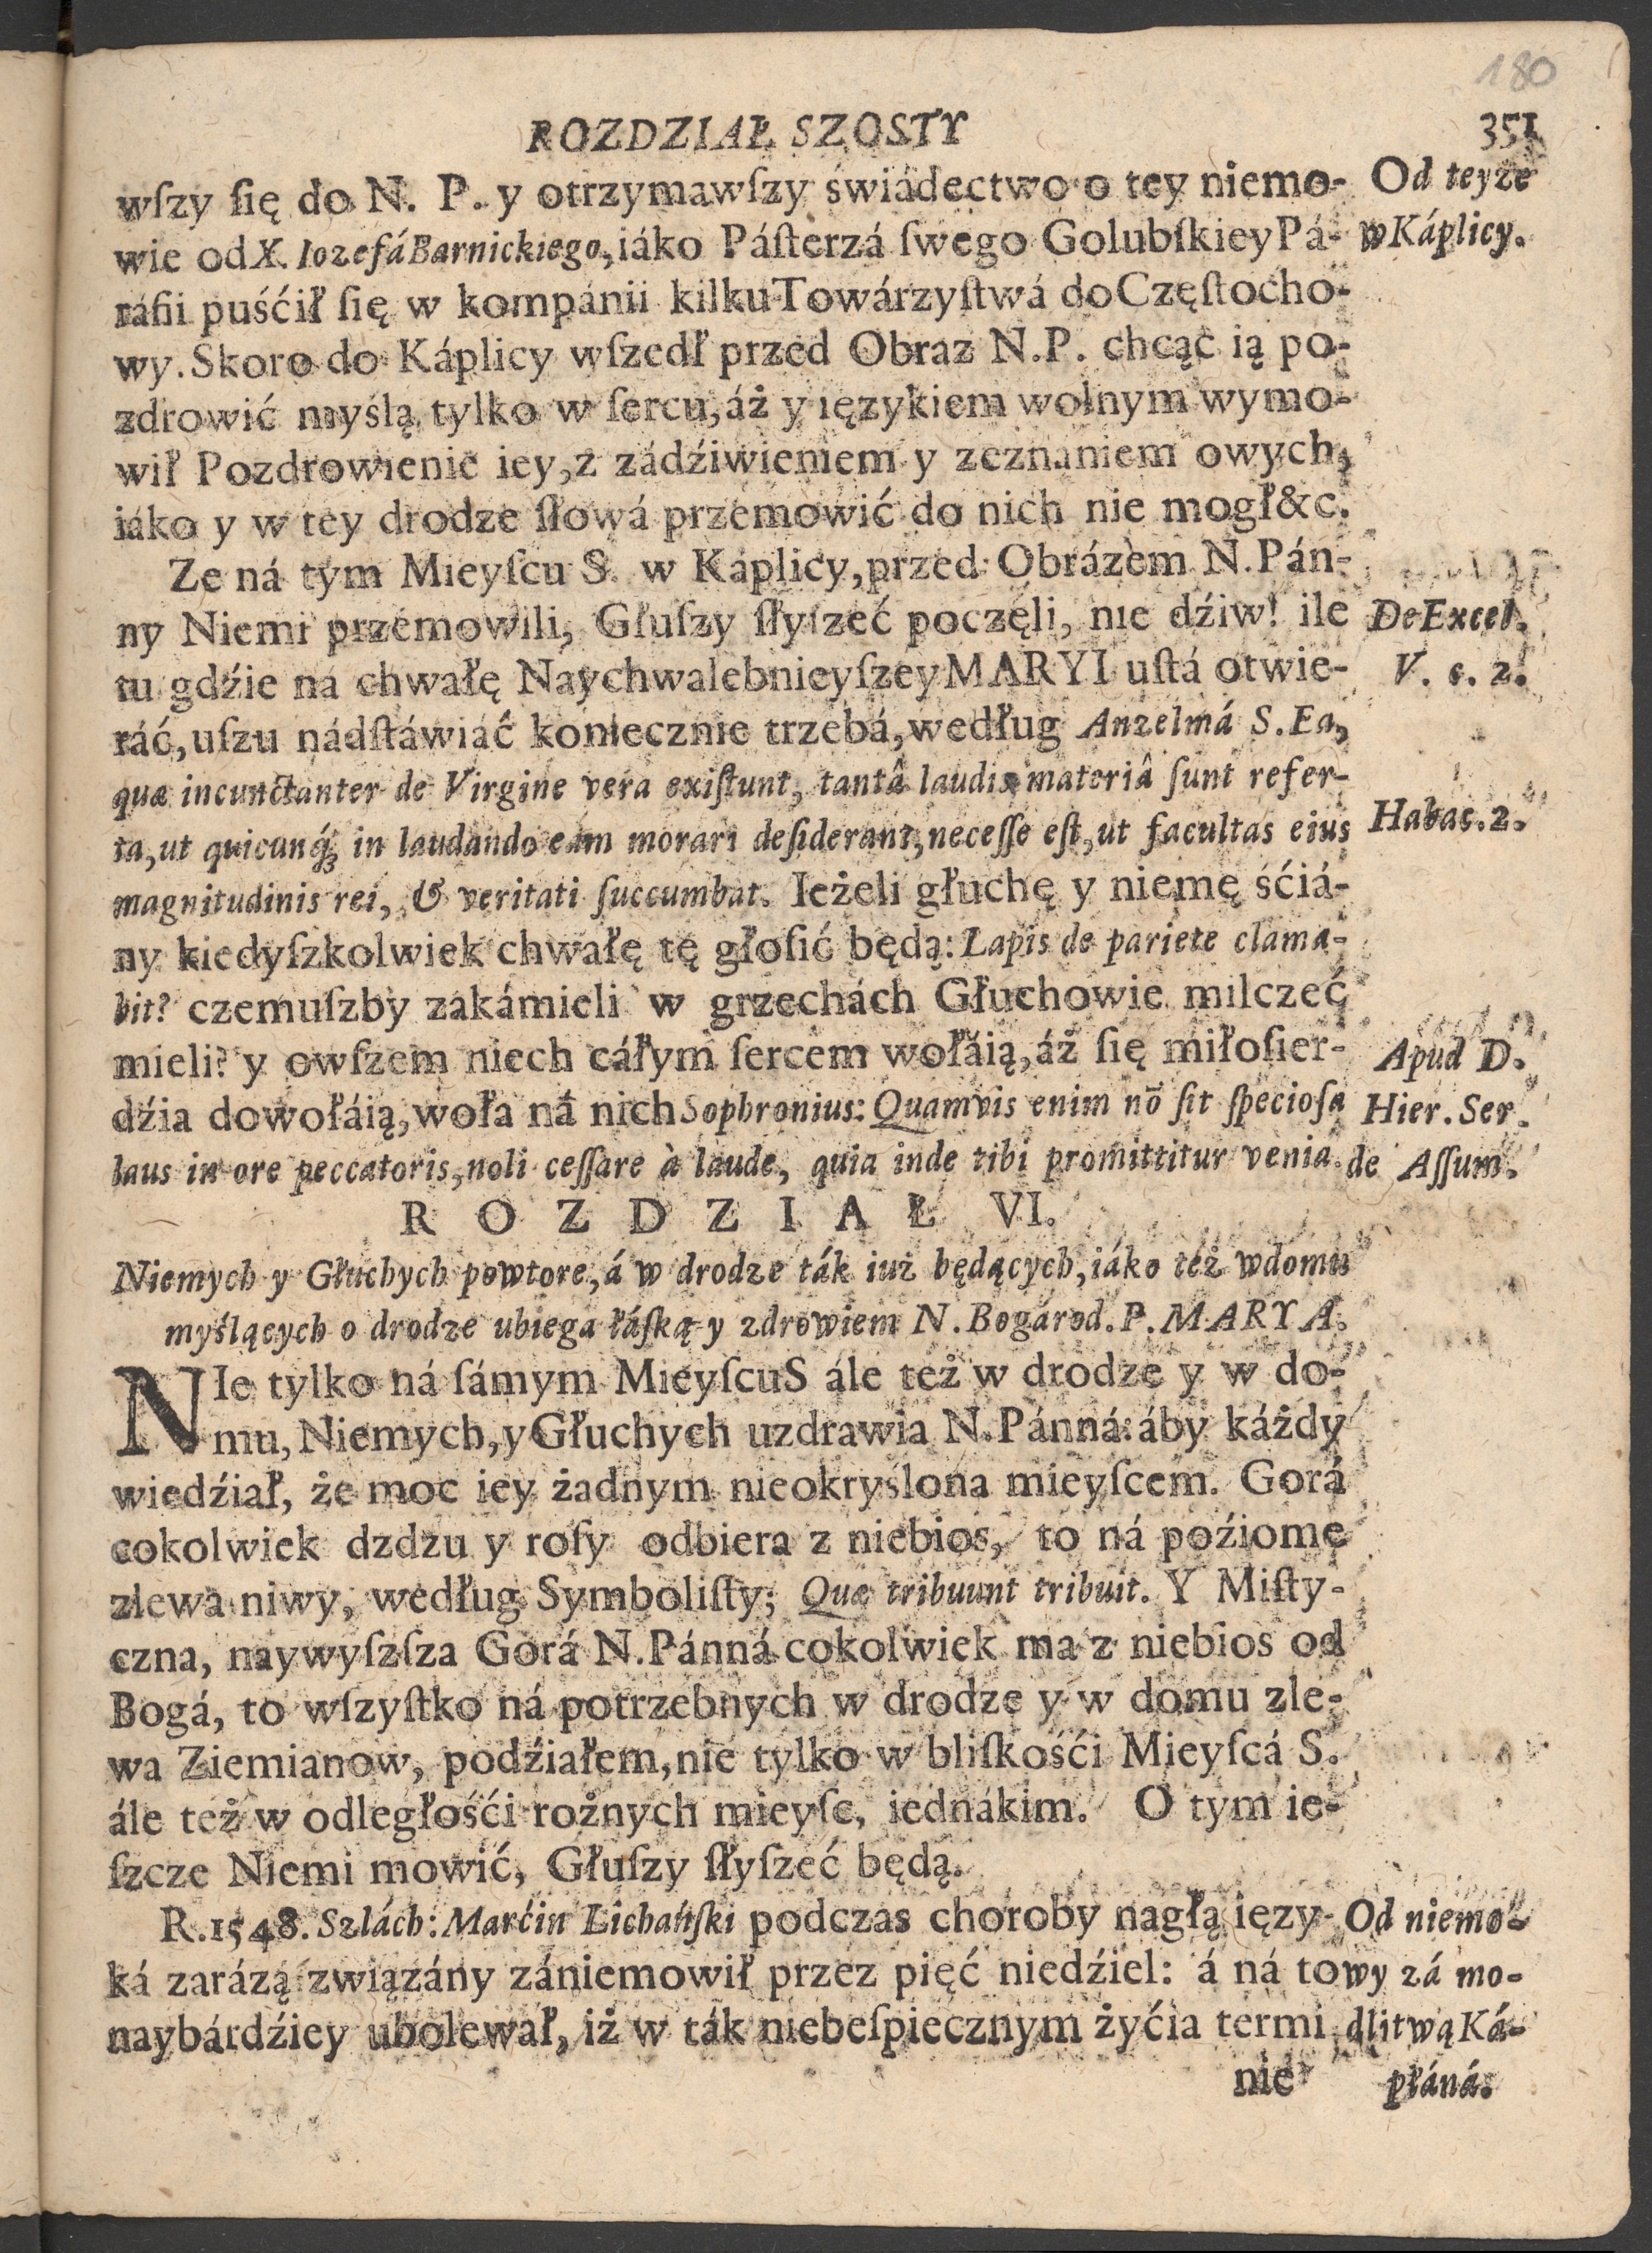 180
ROZDZIAŁ SZOSTY 351
wſzy ſię do N. P. y otrzymawſzy świádectwo o tey niemo-
wie od X. Iozefá Barnickiego, iáko Páſterzá ſwego Golubſkiey Pá-
ráfii puśćił ſię w kompánii kilku Towárzyſtwá do Częſtocho-
wy. Skoro do Káplicy wſzedł przed Obraz N.P. chcąc ią po-
zdrowić myślą tylko w ſercu, áż y ięzykiem wolnym wymo-
wił Pozdrowienie iey, z zádźiwieniem y zeznaniem owych,
iáko y w tey drodze ſłowá przemowić do nich nie mogł &c.
Od teyże
w Káplicy.
Ze ná tym Mieyſcu S. w Káplicy, przed Obrázem N. Pán-
ny Niemi przemowili, Głuſzy ſłyſzeć poczęli, nie dźiw! ile
tu gdźie ná chwałę Naychwalebnieyſzey MARYI uſtá otwie-
ráć, uſzu nádſtáwiáć koniecznie trzebá, według Anzelmá S. Ea,
quæ incunctanter de Virgine vera exiſtunt, tantâ laudis materiâ ſunt refer-
ta, ut quicunq; in laudando eam morari deſiderant, neceſſe eſt, ut facultas eius
magnitudinis rei, & veritati ſuccumbat. Ieżeli głuchę y niemę śćiá-
ny kiedyſzkolwiek chwałę tę głoſić będą: Lapis de pariete clama-
bit? czemuſzby zakámieli w grzechách Głuchowie milczeć
mieli? y owſzem niech cáłym ſercem wołáią, áż ſię miłoſier-
dźia dowołáią, woła ná nich Sophronius: Quamvis enim nō ſit ſpecioſa
laus in ore peccatoris, noli ceſſare à laude, quia inde tibi promittitur venia.
De Excel.
V. c. 2.
Habac. 2.
Apud D.
Hier. Ser.
de Aſſum.
ROZDZIAŁ VI.
Niemych y Głuchych powtore, á w drodze ták iuż będących, iáko też w domu
myślących o drodze ubiega łáſką y zdrowiem N. Bogárod. P. MARYA.
NIe tylko ná ſámym Mieyſcu S ále też w drodze y w do-
mu, Niemych, y Głuchych uzdrawia N. Pánná: áby káżdy
wiedźiał, że moc iey żadnym nieokryślona mieyſcem. Gorá
cokolwiek dzdzu y roſy odbiera z niebios, to ná poźiome
zlewa niwy, według Symboliſty; Quæ tribuunt tribuit. Y Miſty-
czna, naywyſzſza Gorá N. Pánná cokolwiek ma z niebios od
Bogá, to wſzyſtko ná potrzebnych w drodze y w domu zle-
wa Ziemianow, podźiałem, nie tylko w bliſkośći Mieyſcá S.
ále też w odległośći rożnych mieyſc, iednákim. O tym ie-
ſzcze Niemi mowić, Głuſzy ſłyſzeć będą.
R. 1548. Szlách: Marćin Lichańſki podczas choroby nagłą ięzy-
ká zarázą związány zániemowił przez pięć niedźiel: á ná to
naybárdźiey ubolewał, iż w ták niebeſpiecznym żyćia termi
nie
Od niemo-
wy zá mo-
dlitwą Ká-
płáná.